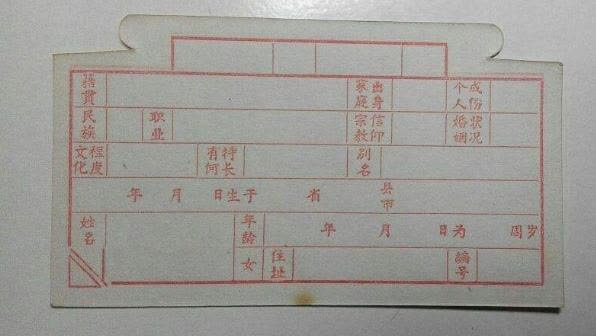 籍貫 家庭出身 个人成份
民族 职业 宗教信仰 婚姻状况
文化程度 有何特长 别名
年 月 日生于 省 县市
姓名 年龄 年 月 日为 周岁
女 住址 編号